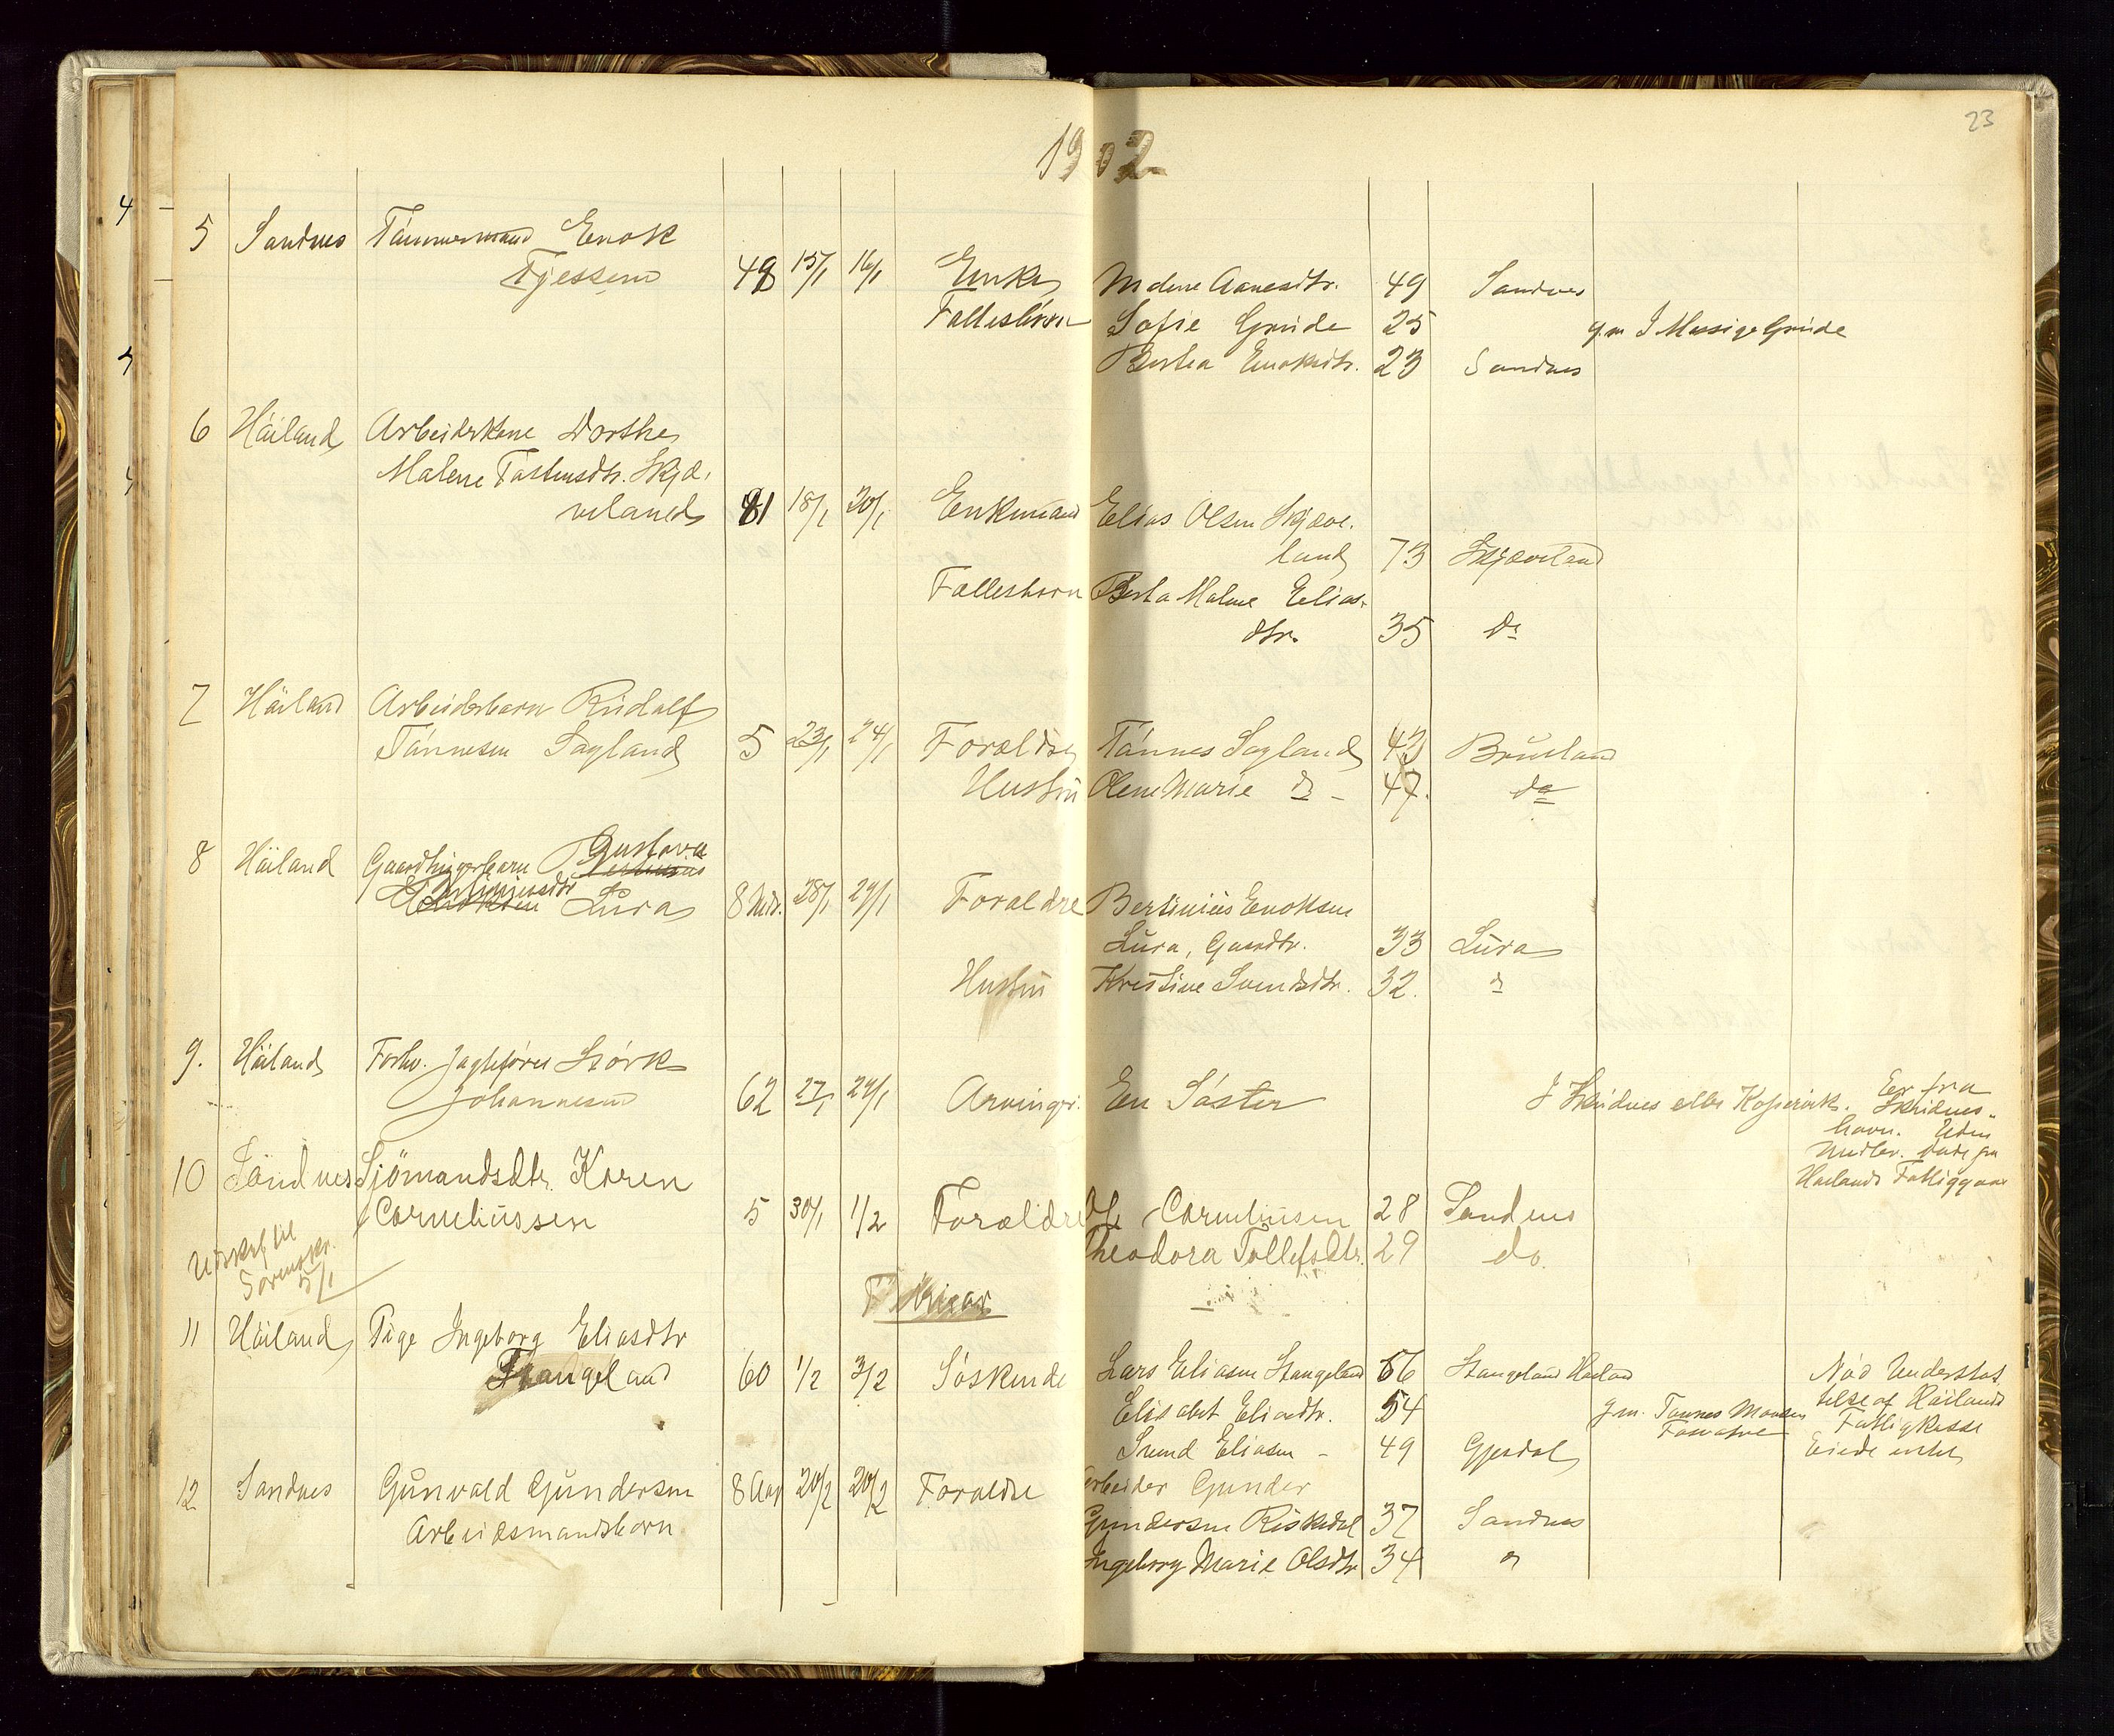 23
1902
5 Sandnes Tömmermand Enok
Tjessem 48 15/1 16/1 Enke Malene Aanesdtr. 49 Sandnes
Fællesbörn Sofie Grude 25 g.m. J Grude
Bertea Enoksdtr. 23 Sandnes
6 Höiland Arbeiderkone Dorthe
Malene Tostensdtr. Skjæ-
veland 81 18/1 20/1 Enkemand Elias Olsen Skjæve-
land 73 Skjæveland
Fællesbarn Berta Malene Elias-
dtr. 35 do
7 Höiland Arbeiderbarn Rudolf
Tönnesen Sagland 5 23/1 24/1 Forældre Tönnes Sagland 43 Brueland
Hustru Olene Marie do - 47. do
8 Höiland Gaardbrugerbarn Gustava
Lura 8 Mdr. 28/1 29/1 Forældre Bertinius Enoksen
Lura, Gaardbr. 33 Lura
Hustru Kristine Svendsdtr. 32. do
9. Höiland Forhv. Jagtefører Störk
Johannesen 62 27/1 29/1 Arvinger: En Söster I Skudnes eller Kopervik. Er fra
Skudnes-
havn. Uden
Midler. Döde paa
Hølands Fattiggaard
10 Sandnes Sjömandsdtr. Karen
Corneliussen 5 30/1 1/2 Forældre Ole Corneliusen 28 Sandnes
Theodora Tollefsdtr. 29 do.
Udskrift til
Sorenskr.
5/1
Februar
11 Höiland Pige Ingeborg Eliasdtr
Stangeland 60 1/2 3/2 Söskende Lars Eliasen Stangeland 56 Stangeland Høiland Nöd Understöt-
telse af Höilands
Fattigkasse
Eiede intet
Elisabet Eliasdtr. 54 g.m. Tönnes Monsen
Svend Eliasen - 49 Gjesdal
12 Sandnes Gunvald Gundersen
Arbeidsmandsbarn 8 Aar 20/2 20/2 Forældre Arbeider Gunder
Gundersen Riskedal 37 Sandnes
Ingeborg Marie Olsdtr 34 do